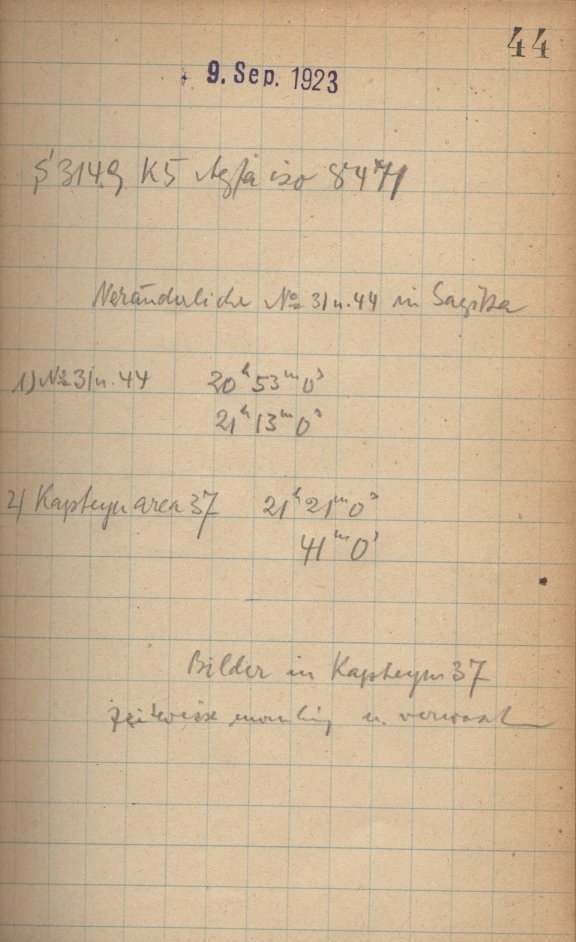 44
9. Sep. 1923
S 3149 K5 Agfa iso 8471
Veränderliche No 31 u. 44 in Sagitta
1) No 31 u. 44 20h 53m 0s
21h 13m 0s
2) Kapteyn area 37 21h 21m 0s
41m 0s
Bilder in Kapteyn 37
zeitweise unruhig u. verwaschen